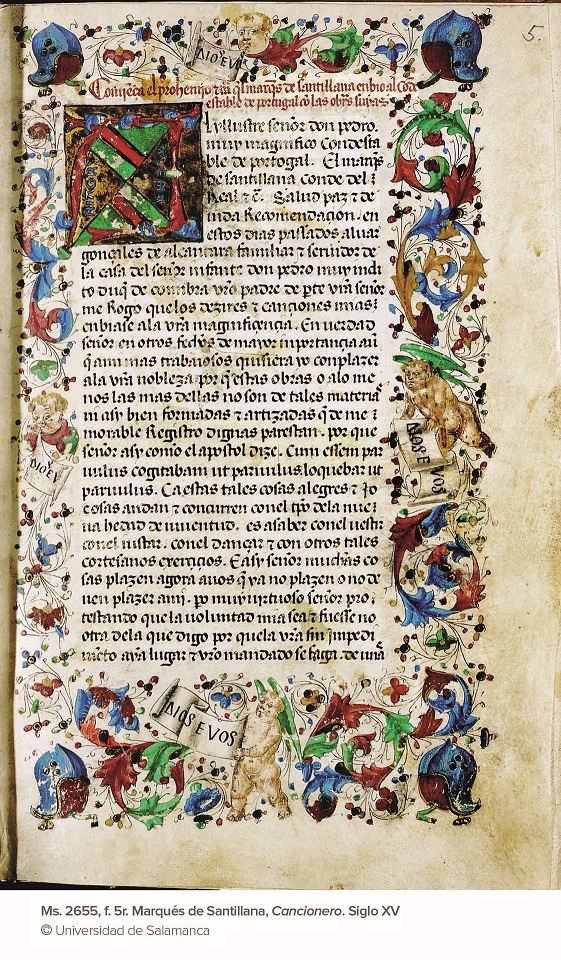 5.
DIO E V
Comiẽca el prohemio q̃l marq̃s de santillana enbio al cõde
estable de portugal cõ las obr̃s suyas
Illustre señor don pedro.
muy magnifico Condesta
ble de portogal. El marq̃s
de santillana conde del
Real ⁊ c̃. Salud paz ⁊ de
uida Recomendaçion. en
estos dias passados aluar
gonçales de alcantara familiar ⁊ seruidor de
la casa del señor infante don pedro muy incli
to duq̃ de coimbra vr̃o padre de p̃te vr̃a señor
me Rogo que los dezires ⁊ cançiones mias
enbiase ala vr̃a magnifiçençia. En verdad
señor en otros fechos de mayor inportançia aũ
q̃ a mi mas trabaiosos quisiera yo conplazer
ala vr̃a nobleza. por q̃ estas obras o alo me
nos las mas dellas no son de tales materias
ni asy bien formadas ⁊ artizadas q̃ de me
morable Registro dignas parescan. por que
señor asy como el apostol dize. Cum essem par
uulus cogitabam ut paruulus. loquebar ut
paruulus. Ca estas tales cosas alegres ⁊ Jo
cosas andan ⁊ concurren conel tp̃o dela nue
ua hedad de iuuentud. es asaber conel uestir
conel iustar. conel dançar ⁊ con otros tales
cortesanos exerçiçios. E asy señor muchas co
sas plazen agora auos q̃ ya no plazen o no de
uen plazer ami. po muy virtuoso señor pro
testando que la voluntad mia sea ⁊ fuesse no
otra dela que digo por que la vr̃a sin inpedi
mẽto aya lugar ⁊ vr̃o mandado se faga. de vña
DIOS E VOS
DIO E V
DIOS E VOS
Ms. 2655, f. 5r. Marqués de Santillana, Cancionero. Siglo XV
© Universidad de Salamanca